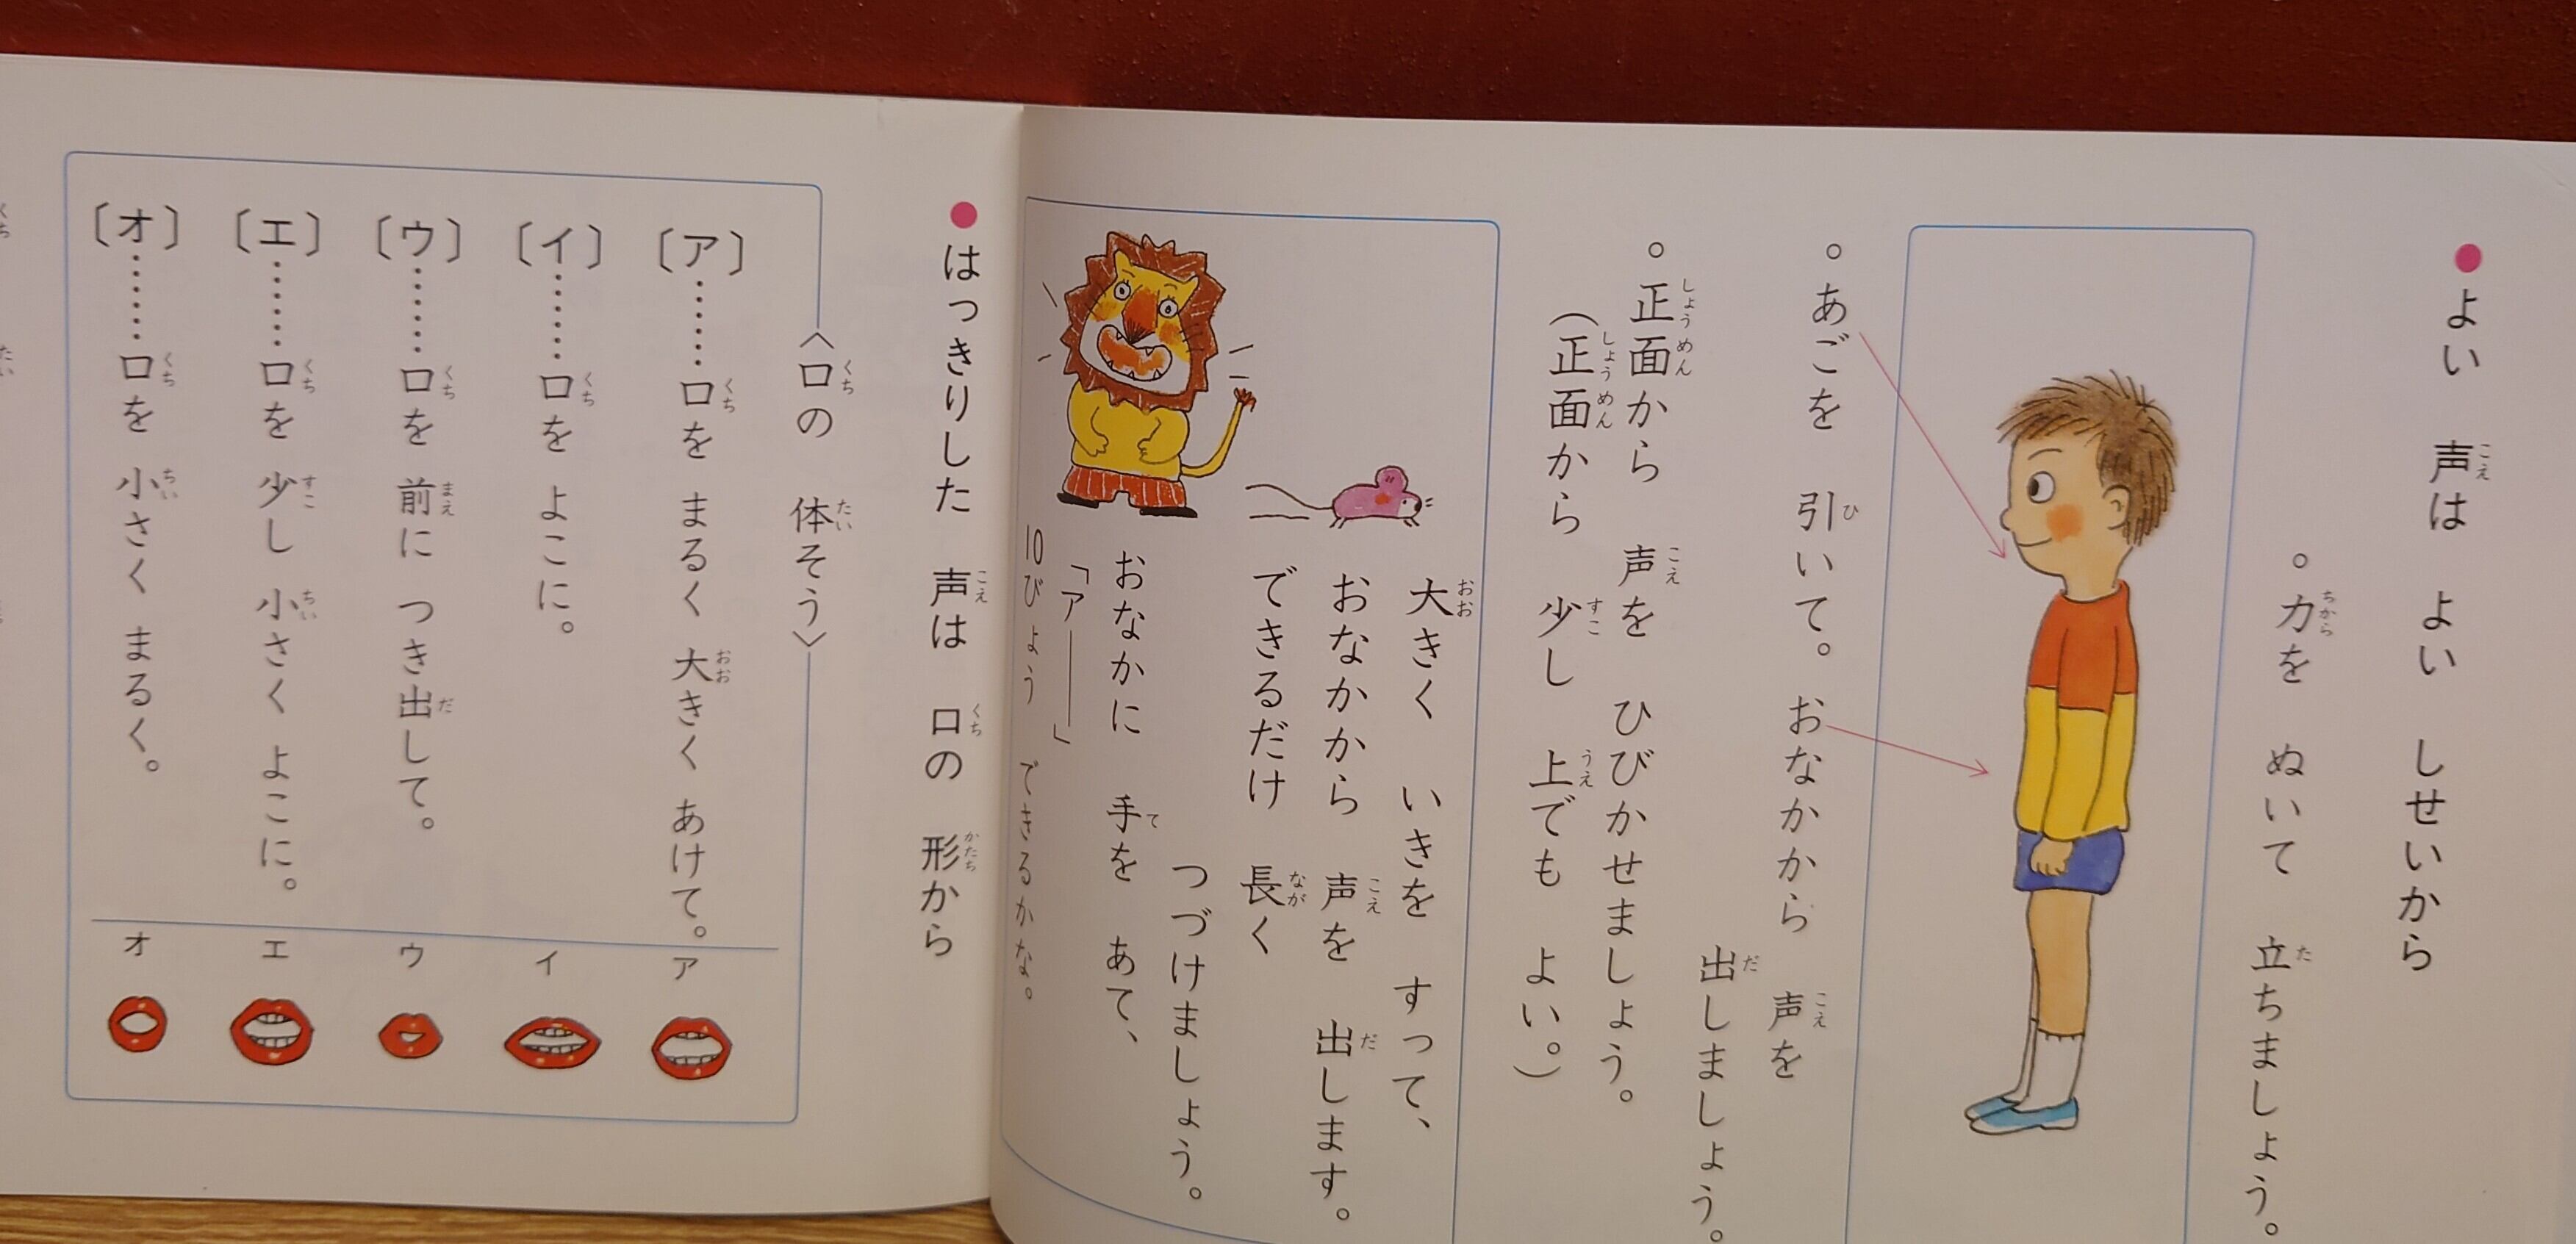 ●よい 声は よい しせいから
○力を ぬいて 立ちましょう。
○あごを 引いて。おなかから 声を
出しましょう。
○正面から 声を ひびかせましょう。
(正面から 少し 上でも よい。)
大きく いきを すって、
おなかから 声を 出します。
できるだけ 長く
つづけましょう。
おなかに 手を あて、
「ア――」
10びょう できるかな。
●はっきりした 声は 口の 形から
〈口の 体そう〉
〔ア〕……口を まるく 大きく あけて。
〔イ〕……口を よこに。
〔ウ〕……口を 前に つき出して。
〔エ〕……口を 少し 小さく よこに。
〔オ〕……口を 小さく まるく。
ア
イ
ウ
エ
オ